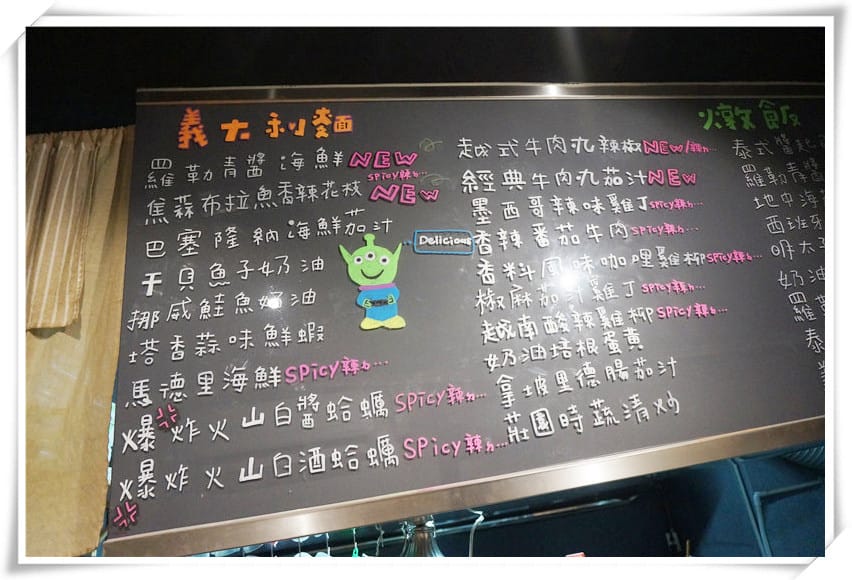 義大利麵
羅勒青醬海鮮NEW
焦蒜布拉魚香辣花枝spicy辣ㄉ… NEW
巴塞隆納海鮮茄汁
干貝魚子奶油
挪威鮭魚奶油
塔香蒜味鮮蝦
馬德里海鮮SPicy辣ㄉ…
爆炸火山白醬蛤蠣SPicy辣ㄉ…
爆炸火山白酒蛤蠣SPicy辣ㄉ…
Delicious
越式牛肉丸辣椒NEW/辣ㄉ…
經典牛肉丸茄汁NEW
墨西哥辣味雞丁spicy辣ㄉ…
香辣蕃茄牛肉spicy辣ㄉ…
香料風味咖哩雞柳spicy辣ㄉ…
椒麻茄汁雞丁spicy辣ㄉ…
越南酸辣雞柳spicy辣ㄉ…
奶油培根蛋黃
拿坡里德腸茄汁
莊園時蔬清炒
燉飯
泰式醬
羅勒青醬
地中海
西班牙
明太子
奶油
羅勒
泰